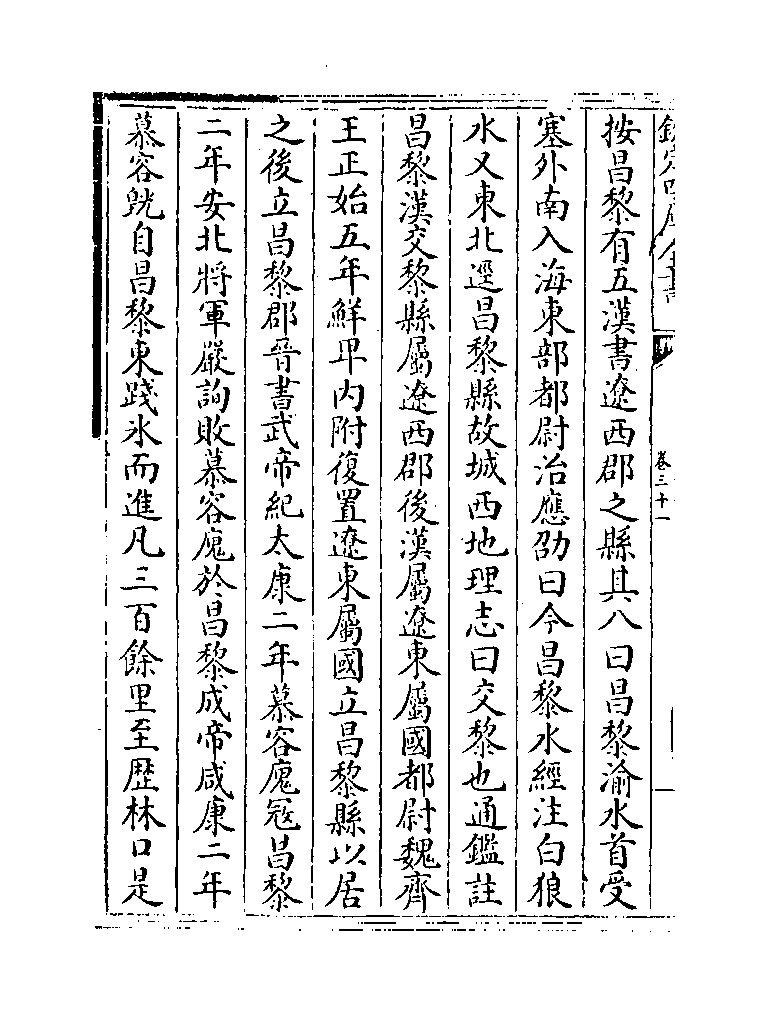 欽定四庫全書
卷三十一
按昌黎有五漢書遼西郡之縣其八曰昌黎渝水首受
塞外南入海東部都尉治應劭曰今昌黎水經注白狼
水又東北逕昌黎縣故城西地理志曰交黎也通鑑註
昌黎漢交黎縣屬遼西郡後漢屬遼東屬國都尉魏齊
王正始五年鮮卑内附復置遼東屬國立昌黎縣以居
之後立昌黎郡晉書武帝紀太康二年慕容廆冦昌黎
二年安北將軍嚴詢敗慕容廆於昌黎成帝咸康二年
慕容皝自昌黎東踐氷而進凡三百餘里至歴林口是